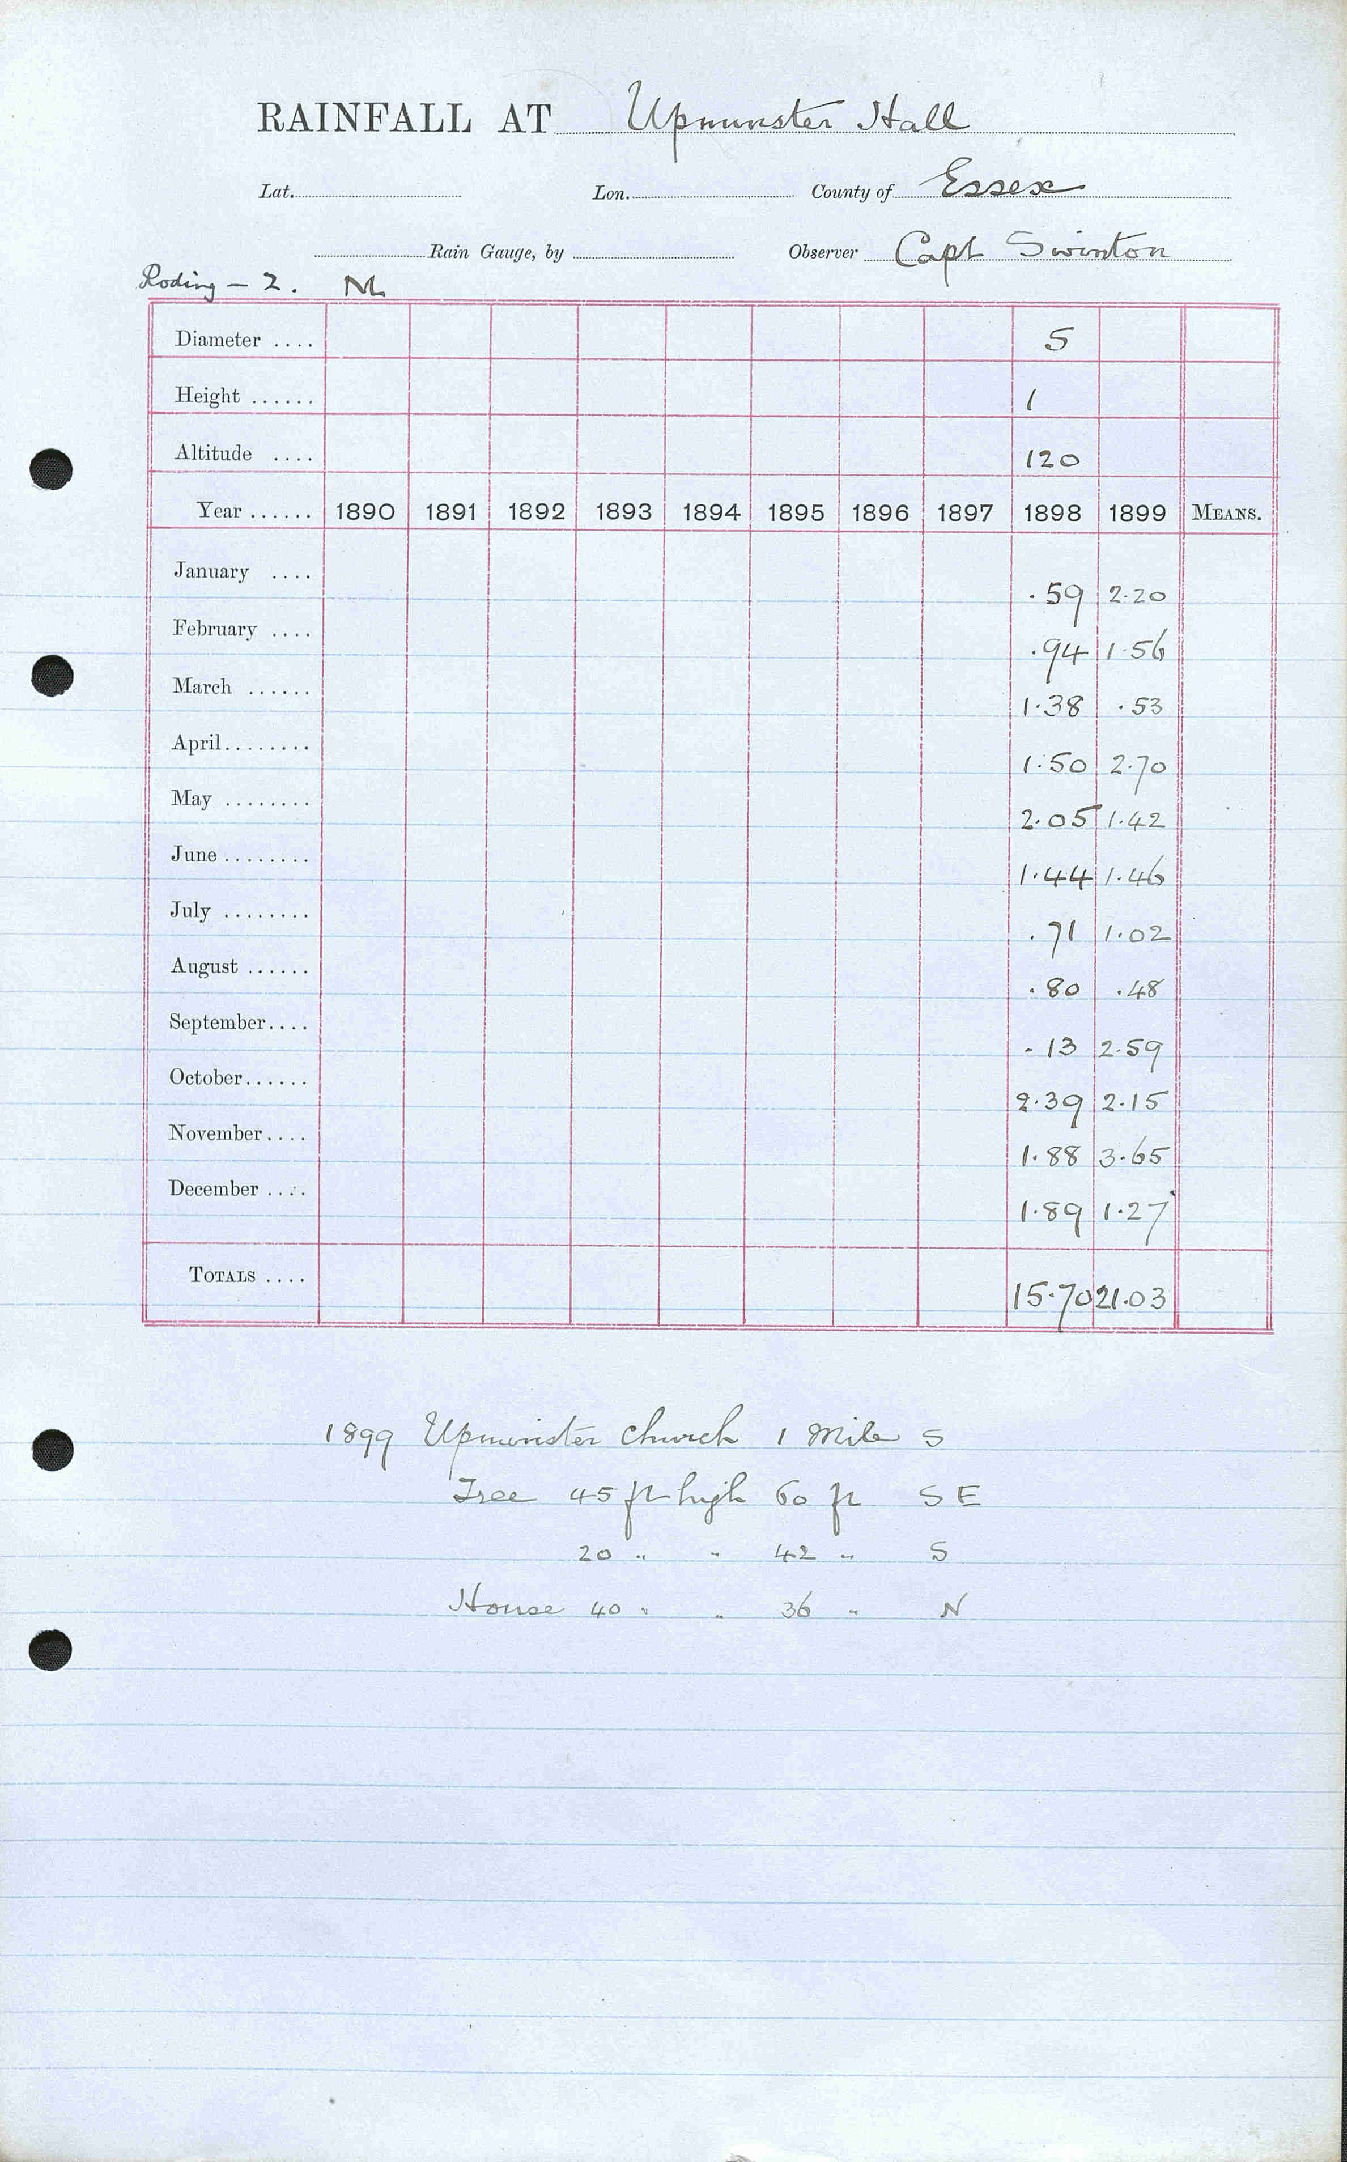 RAINFALL AT Upminster Hall
Lat. Lon. County of Essex
Rain Gauge, by Observer Capt Swinton
Roding – 2.
Diameter .... 5
Height ...... 1
Altitude .... 120
Year ...... 1890 1891 1892 1893 1894 1895 1896 1897 1898 1899 MEANS.
January .... .59 2.20
February .... .94 1.56
March ...... 1.38 .53
April........ 1.50 2.70
May ........ 2.05 1.42
June ........ 1.44 1.46
July ........ .71 1.02
August ...... .80 .48
September.... .13 2.59
October...... 2.39 2.15
November.... 1.88 3.65
December .... 1.89 1.27
TOTALS .... 15.70 21.03
1899 Upminster church 1 mile S
Tree 45 ft high 60 ft SE
20 " " 42 " S
House 40 " " 36 " N